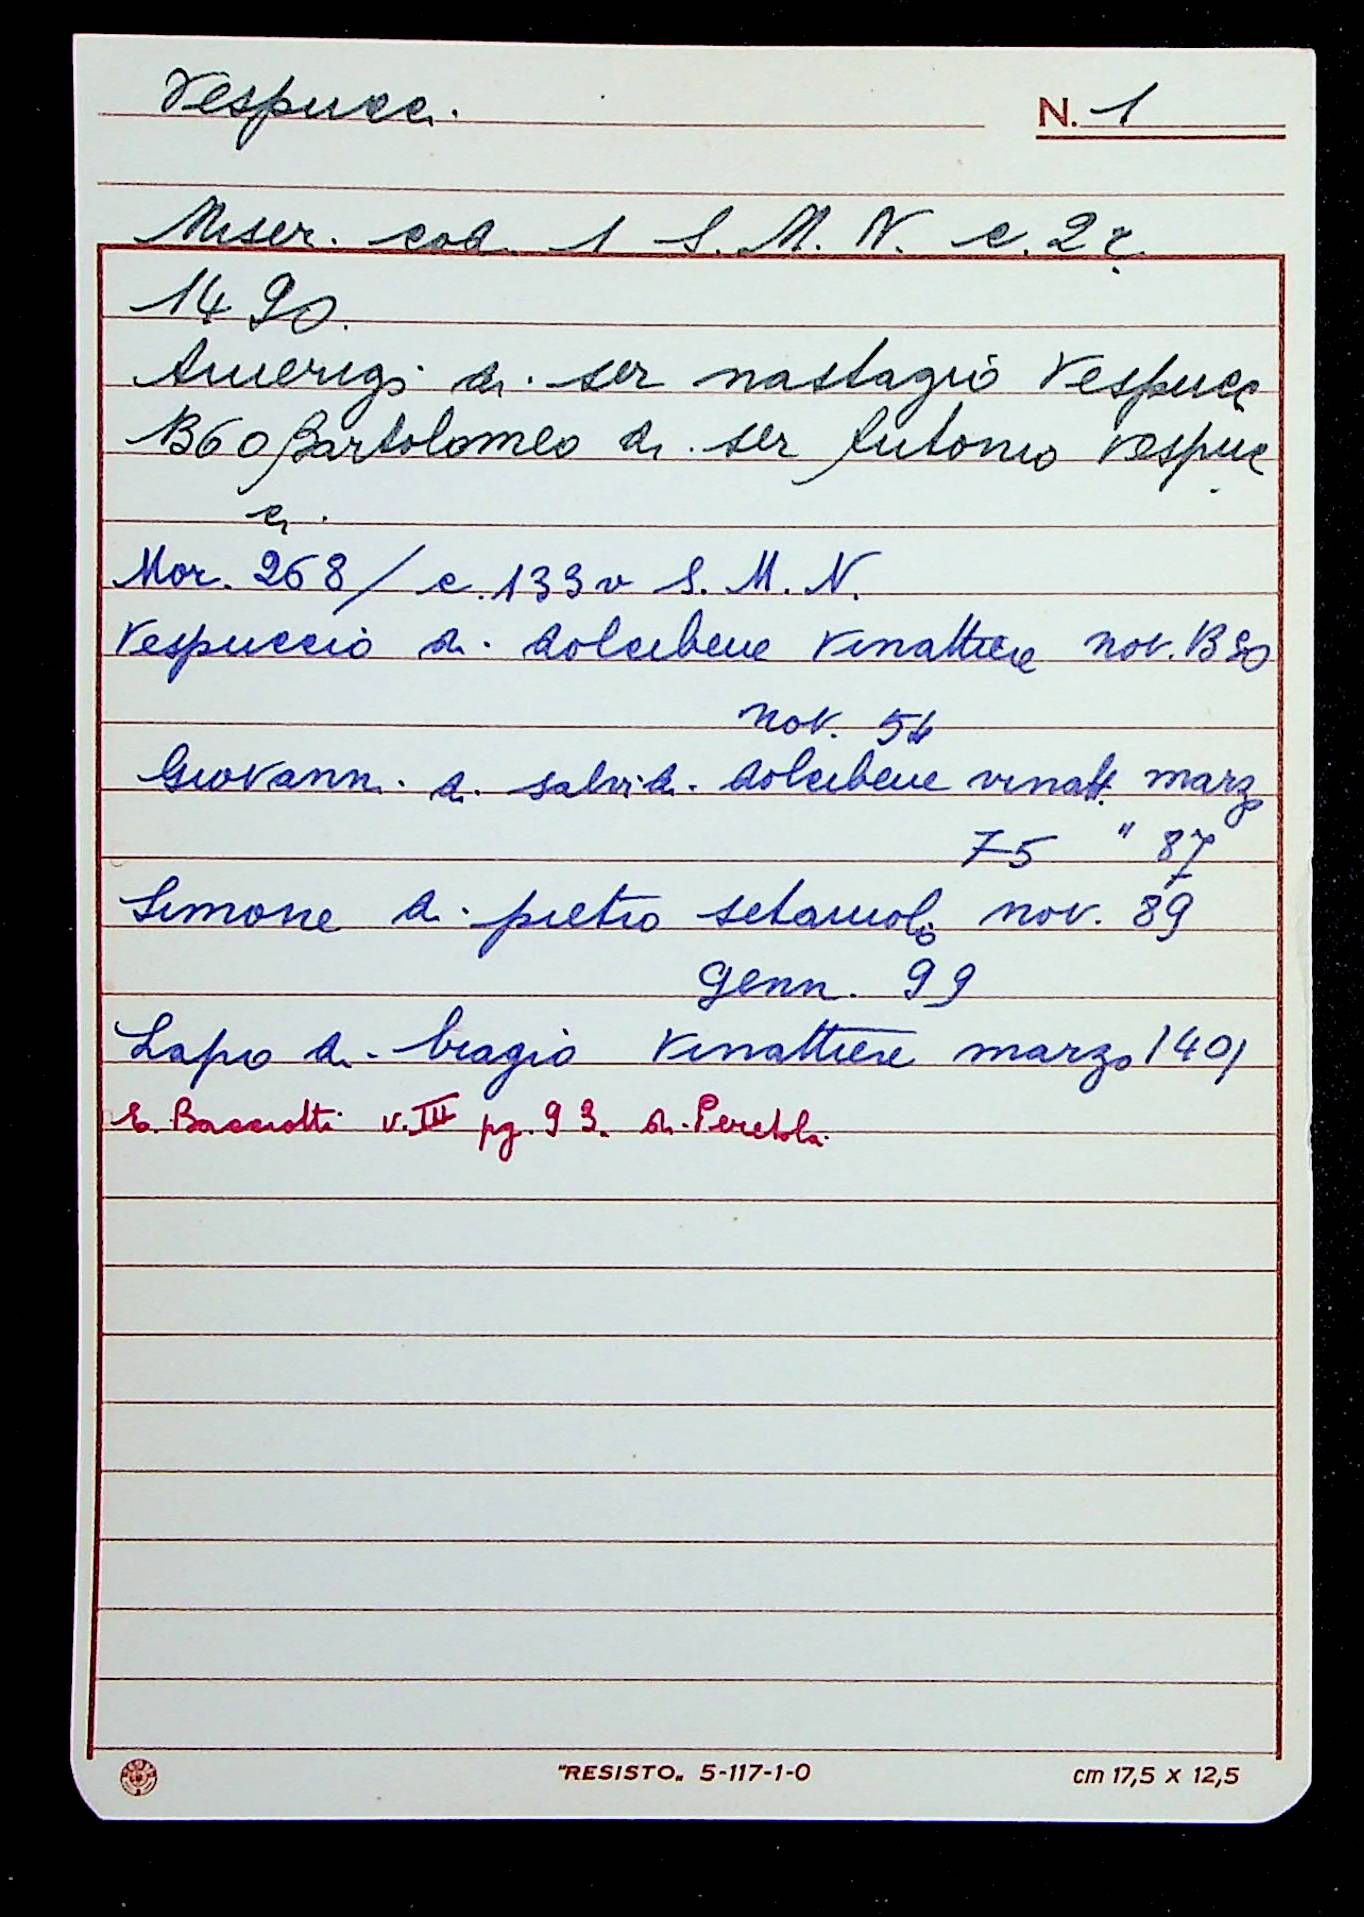 Vespucci.
N. 1
Miser. cod. 1 S. M. N. c. 2 r.
1490.
Amerigi di ser nastagio Vespucc
1360 Bartolomeo di ser Antonio Vespuc
ci.
Mor. 268/ c. 133 v S. M. N.
Vespuccio di dolcibene vinattiere nov. 1350
nov. 54
Giovanni di salvi di dolcibene vinatt. marzo
75 " 87
Simone di pietro setaiuolo nov. 89
Genn. 99
Lapo di biagio vinattiere marzo 1401
E. Bacciotti v. III pg. 93. di Peretola.
"RESISTO„ 5-117-1-0
cm 17,5 x 12,5